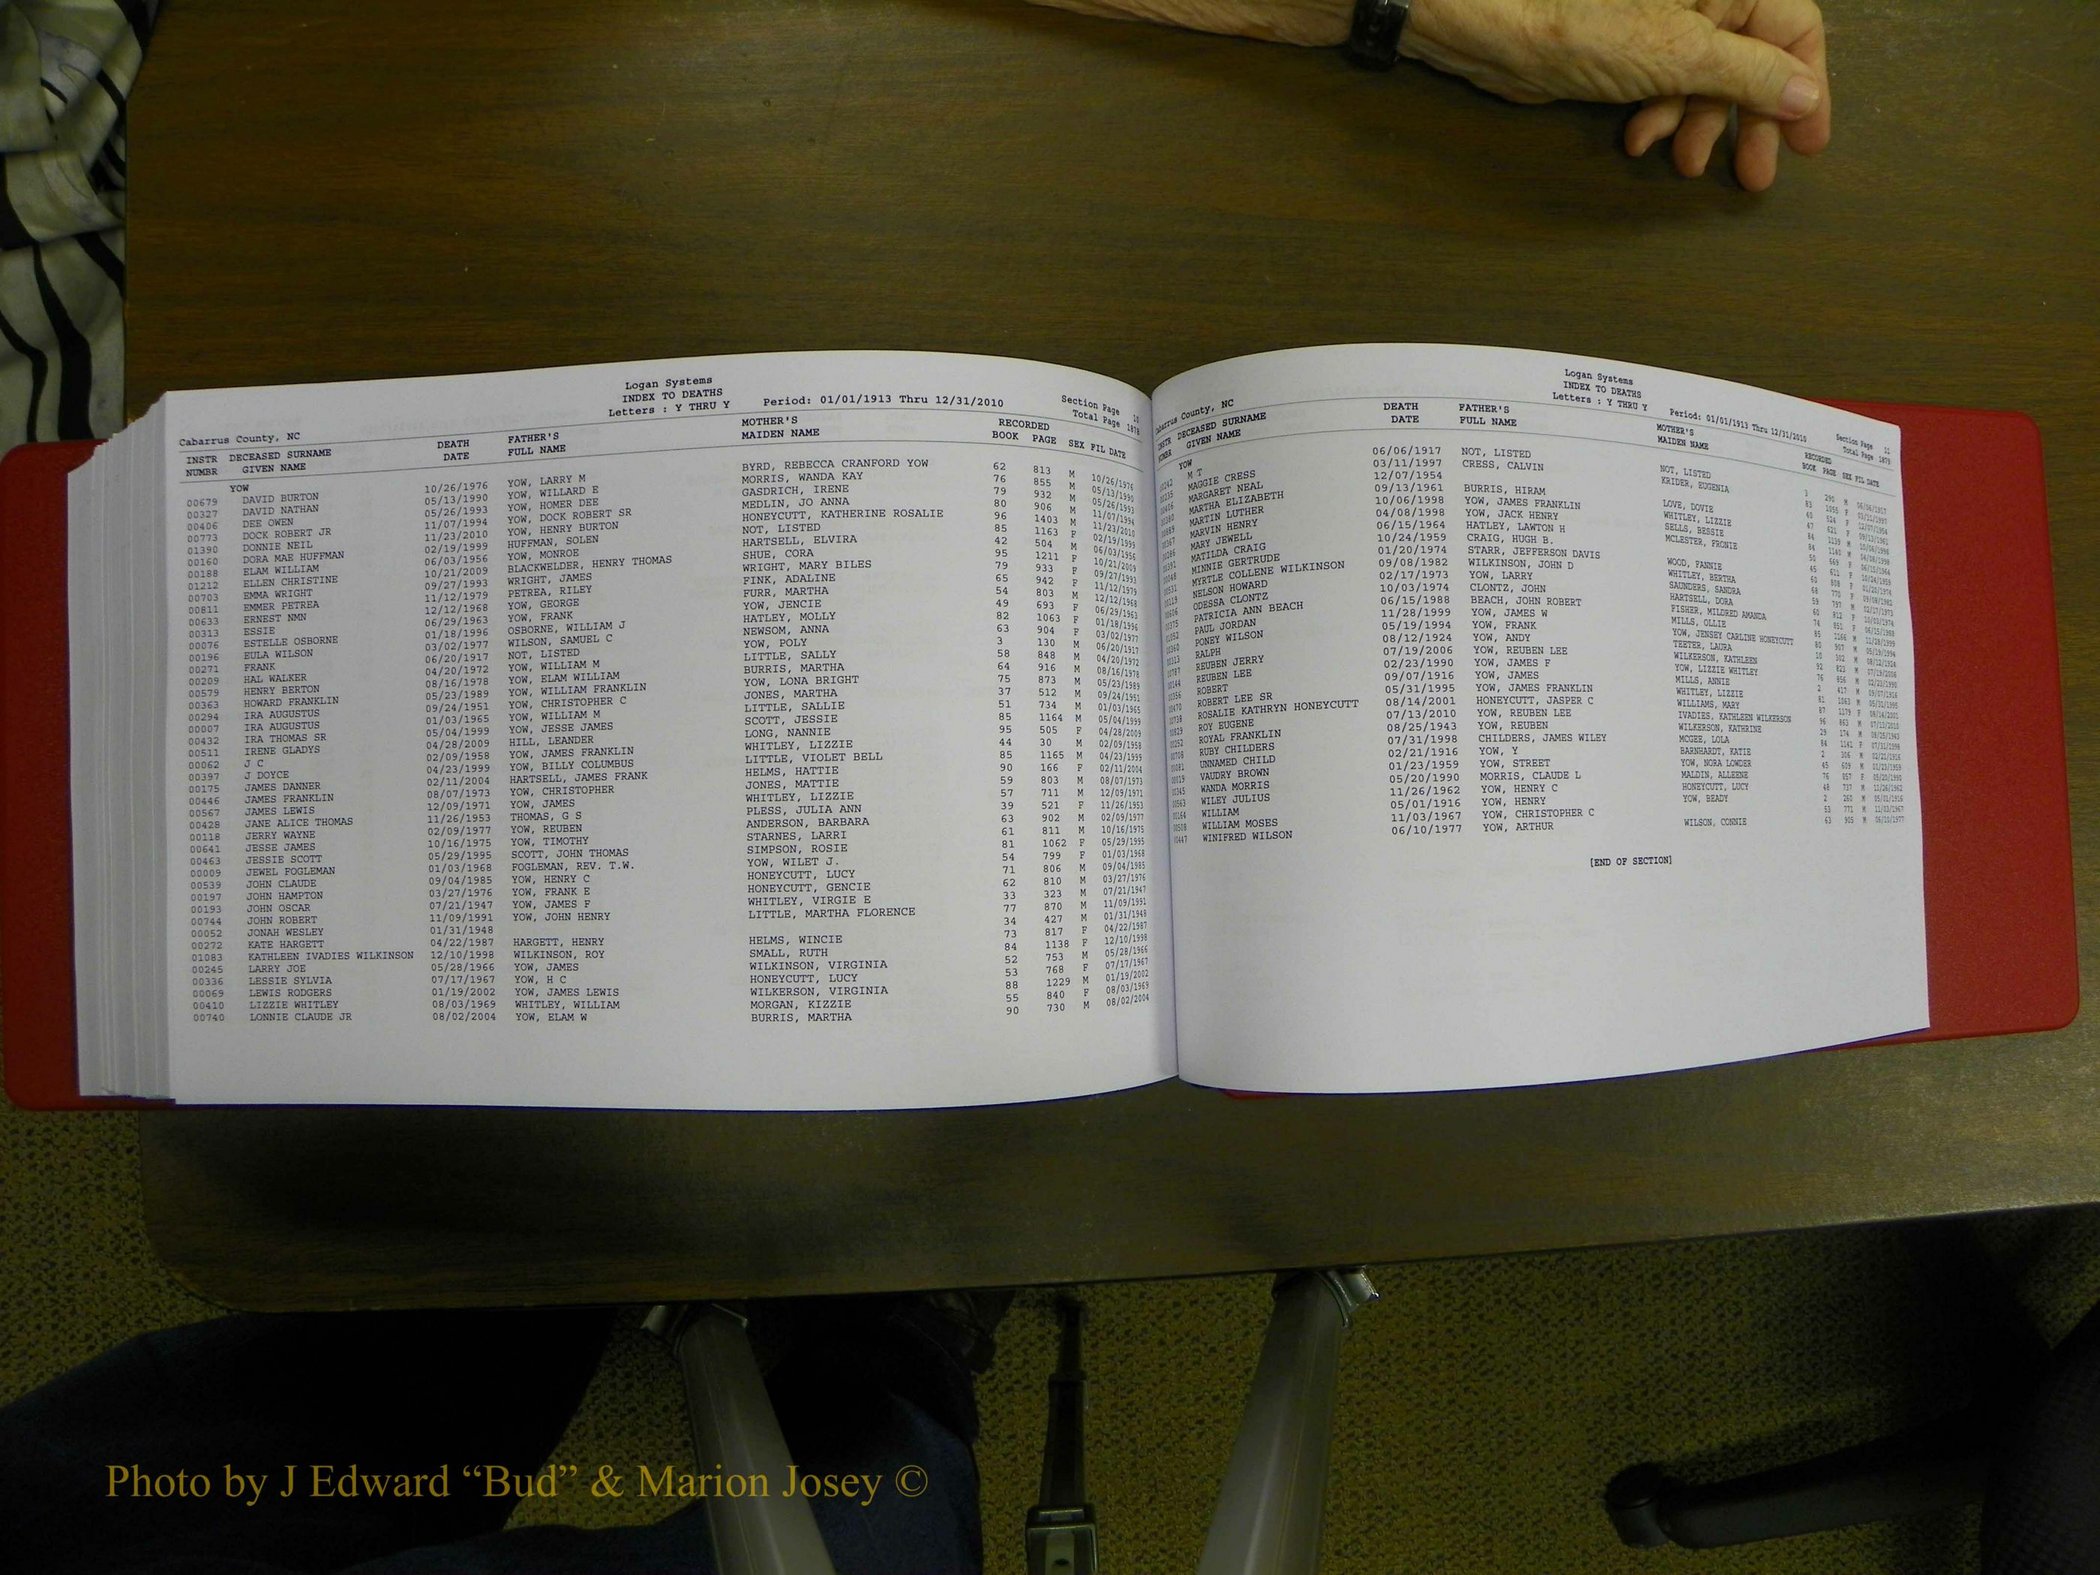 Logan Systems
INDEX TO DEATHS
Letters : Y THRU Y Period: 01/01/1913 Thru 12/31/2010
Section Page 10
Total Page 1878
Cabarrus County, NC
INSTR DECEASED SURNAME DEATH FATHER'S MOTHER'S RECORDED
NUMBR GIVEN NAME DATE FULL NAME MAIDEN NAME BOOK PAGE SEX FIL DATE
YOW
00679 DAVID BURTON 10/26/1976 YOW, LARRY M BYRD, REBECCA CRANFORD YOW 62 813 M 10/26/1976
00327 DAVID NATHAN 05/13/1990 YOW, WILLARD E MORRIS, WANDA KAY 76 855 M 05/13/1990
00406 DEE OWEN 05/26/1993 YOW, HOMER DEE GASDRICH, IRENE 79 932 M 05/26/1993
00773 DOCK ROBERT JR 11/07/1994 YOW, DOCK ROBERT SR MEDLIN, JO ANNA 80 906 M 11/07/1994
01390 DONNIE NEIL 11/23/2010 YOW, HENRY BURTON HONEYCUTT, KATHERINE ROSALIE 96 1403 M 11/23/2010
00160 DORA MAE HUFFMAN 02/19/1999 HUFFMAN, SOLEN NOT, LISTED 85 1163 F 02/19/1999
00188 ELAM WILLIAM 06/03/1956 YOW, MONROE HARTSELL, ELVIRA 42 504 M 06/03/1956
01212 ELLEN CHRISTINE 10/21/2009 BLACKWELDER, HENRY THOMAS SHUE, CORA 95 1211 F 10/21/2009
00703 EMMA WRIGHT 09/27/1993 WRIGHT, JAMES WRIGHT, MARY BILES 79 933 F 09/27/1993
00811 EMMER PETREA 11/12/1979 PETREA, RILEY FINK, ADALINE 65 942 F 11/12/1979
00633 ERNEST NMN 12/12/1968 YOW, GEORGE FURR, MARTHA 54 803 M 12/12/1968
00313 ESSIE 06/29/1963 YOW, FRANK YOW, JENCIE 49 693 F 06/29/1963
00076 ESTELLE OSBORNE 01/18/1996 OSBORNE, WILLIAM J HATLEY, MOLLY 82 1063 F 01/18/1996
00196 EULA WILSON 03/02/1977 WILSON, SAMUEL C NEWSOM, ANNA 63 904 F 03/02/1977
00271 FRANK 06/20/1917 NOT, LISTED YOW, POLY 3 130 M 06/20/1917
00209 HAL WALKER 04/20/1972 YOW, WILLIAM M LITTLE, SALLY 58 848 M 04/20/1972
00579 HENRY BERTON 08/16/1978 YOW, ELAM WILLIAM BURRIS, MARTHA 64 916 M 08/16/1978
00363 HOWARD FRANKLIN 05/23/1989 YOW, WILLIAM FRANKLIN YOW, LONA BRIGHT 75 873 M 05/23/1989
00294 IRA AUGUSTUS 09/24/1951 YOW, CHRISTOPHER C JONES, MARTHA 37 512 M 09/24/1951
00007 IRA AUGUSTUS 01/03/1965 YOW, WILLIAM M LITTLE, SALLIE 51 734 M 01/03/1965
00432 IRA THOMAS SR 05/04/1999 YOW, JESSE JAMES SCOTT, JESSIE 85 1164 M 05/04/1999
00511 IRENE GLADYS 04/28/2009 HILL, LEANDER LONG, NANNIE 95 505 F 04/28/2009
00062 J C 02/09/1958 YOW, JAMES FRANKLIN WHITLEY, LIZZIE 44 30 M 02/09/1958
00397 J DOYCE 04/23/1999 YOW, BILLY COLUMBUS LITTLE, VIOLET BELL 85 1165 M 04/23/1999
00175 JAMES DANNER 02/11/2004 HARTSELL, JAMES FRANK HELMS, HATTIE 90 166 F 02/11/2004
00446 JAMES FRANKLIN 08/07/1973 YOW, CHRISTOPHER JONES, MATTIE 59 803 M 08/07/1973
00567 JAMES LEWIS 12/09/1971 YOW, JAMES WHITLEY, LIZZIE 57 711 M 12/09/1971
00428 JANE ALICE THOMAS 11/26/1953 THOMAS, G S PLESS, JULIA ANN 39 521 F 11/26/1953
00118 JERRY WAYNE 02/09/1977 YOW, REUBEN ANDERSON, BARBARA 63 902 M 02/09/1977
00641 JESSE JAMES 10/16/1975 YOW, TIMOTHY STARNES, LARRI 61 811 M 10/16/1975
00463 JESSIE SCOTT 05/29/1995 SCOTT, JOHN THOMAS SIMPSON, ROSIE 81 1062 F 05/29/1995
00009 JEWEL FOGLEMAN 01/03/1968 FOGLEMAN, REV. T.W. YOW, WILET J. 54 799 F 01/03/1968
00539 JOHN CLAUDE 09/04/1985 YOW, HENRY C HONEYCUTT, LUCY 71 806 M 09/04/1985
00197 JOHN HAMPTON 03/27/1976 YOW, FRANK E HONEYCUTT, GENCIE 62 810 M 03/27/1976
00193 JOHN OSCAR 07/21/1947 YOW, JAMES F WHITLEY, VIRGIE E 33 323 M 07/21/1947
00744 JOHN ROBERT 11/09/1991 YOW, JOHN HENRY LITTLE, MARTHA FLORENCE 77 870 M 11/09/1991
00052 JONAH WESLEY 01/31/1948 34 427 M 01/31/1948
00272 KATE HARGETT 04/22/1987 HARGETT, HENRY HELMS, WINCIE 73 817 F 04/22/1987
01083 KATHLEEN IVADIES WILKINSON 12/10/1998 WILKINSON, ROY SMALL, RUTH 84 1138 F 12/10/1998
00245 LARRY JOE 05/28/1966 YOW, JAMES WILKINSON, VIRGINIA 52 753 M 05/28/1966
00336 LESSIE SYLVIA 07/17/1967 YOW, H C HONEYCUTT, LUCY 53 768 F 07/17/1967
00069 LEWIS RODGERS 01/19/2002 YOW, JAMES LEWIS WILKERSON, VIRGINIA 88 1229 M 01/19/2002
00410 LIZZIE WHITLEY 08/03/1969 WHITLEY, WILLIAM MORGAN, KIZZIE 55 840 F 08/03/1969
00740 LONNIE CLAUDE JR 08/02/2004 YOW, ELAM W BURRIS, MARTHA 90 730 M 08/02/2004
Logan Systems
INDEX TO DEATHS
Letters : Y THRU Y Period: 01/01/1913 Thru 12/31/2010
Section Page 11
Total Page 1879
Cabarrus County, NC
INSTR DECEASED SURNAME DEATH FATHER'S MOTHER'S RECORDED
NUMBR GIVEN NAME DATE FULL NAME MAIDEN NAME BOOK PAGE SEX FIL DATE
YOW
00242 M T 06/06/1917 NOT, LISTED NOT, LISTED 3 290 M 06/06/1917
00235 MAGGIE CRESS 03/11/1997 CRESS, CALVIN KRIDER, EUGENIA 83 1055 F 03/11/1997
00406 MARGARET NEAL 12/07/1954 40 524 F 12/07/1954
00380 MARTHA ELIZABETH 09/13/1961 BURRIS, HIRAM LOVE, DOVIE 47 621 F 09/13/1961
00889 MARTIN LUTHER 10/06/1998 YOW, JAMES FRANKLIN WHITLEY, LIZZIE 84 1139 M 10/06/1998
00367 MARVIN HENRY 04/08/1998 YOW, JACK HENRY SELLS, BESSIE 84 1140 M 04/08/1998
00286 MARY JEWELL 06/15/1964 HATLEY, LAWTON H MCLESTER, FRONIE 50 669 F 06/15/1964
00391 MATILDA CRAIG 10/24/1959 CRAIG, HUGH B. 45 611 F 10/24/1959
00048 MINNIE GERTRUDE 01/20/1974 STARR, JEFFERSON DAVIS WOOD, FANNIE 60 808 F 01/20/1974
00532 MYRTLE COLLENE WILKINSON 09/08/1982 WILKINSON, JOHN D WHITLEY, BERTHA 68 770 F 09/08/1982
00119 NELSON HOWARD 02/17/1973 YOW, LARRY SAUNDERS, SANDRA 59 797 M 02/17/1973
00606 ODESSA CLONTZ 10/03/1974 CLONTZ, JOHN HARTSELL, DORA 60 812 F 10/03/1974
00375 PATRICIA ANN BEACH 06/15/1988 BEACH, JOHN ROBERT FISHER, MILDRED AMANDA 74 851 F 06/15/1988
01052 PAUL JORDAN 11/28/1999 YOW, JAMES W MILLS, OLLIE 85 1166 M 11/28/1999
00360 PONEY WILSON 05/19/1994 YOW, FRANK YOW, JENSEY CARLINE HONEYCUTT 80 907 M 05/19/1994
00313 RALPH 08/12/1924 YOW, ANDY TEETER, LAURA 10 302 M 08/12/1924
00787 REUBEN JERRY 07/19/2006 YOW, REUBEN LEE WILKERSON, KATHLEEN 92 823 M 07/19/2006
00144 REUBEN LEE 02/23/1990 YOW, JAMES F YOW, LIZZIE WHITLEY 76 856 M 02/23/1990
00356 ROBERT 09/07/1916 YOW, JAMES MILLS, ANNIE 2 417 M 09/07/1916
00470 ROBERT LEE SR 05/31/1995 YOW, JAMES FRANKLIN WHITLEY, LIZZIE 81 1063 M 05/31/1995
00738 ROSALIE KATHRYN HONEYCUTT 08/14/2001 HONEYCUTT, JASPER C WILLIAMS, MARY 87 1179 F 08/14/2001
00829 ROY EUGENE 07/13/2010 YOW, REUBEN LEE IVADIES, KATHLEEN WILKERSON 96 863 M 07/13/2010
00252 ROYAL FRANKLIN 08/25/1943 YOW, REUBEN WILKERSON, KATHRINE 29 174 M 08/25/1943
00708 RUBY CHILDERS 07/31/1998 CHILDERS, JAMES WILEY MCGEE, LOLA 84 1141 F 07/31/1998
00081 UNNAMED CHILD 02/21/1916 YOW, Y BARNHARDT, KATIE 2 306 M 02/21/1916
00019 VAUDRY BROWN 01/23/1959 YOW, STREET YOW, NORA LOWDER 45 609 M 01/23/1959
00345 WANDA MORRIS 05/20/1990 MORRIS, CLAUDE L MALDIN, ALLEENE 76 857 F 05/20/1990
00563 WILEY JULIUS 11/26/1962 YOW, HENRY C HONEYCUTT, LUCY 48 737 M 11/26/1962
00164 WILLIAM 05/01/1916 YOW, HENRY YOW, BEADY 2 260 M 05/01/1916
00508 WILLIAM MOSES 11/03/1967 YOW, CHRISTOPHER C 53 771 M 11/03/1967
00447 WINIFRED WILSON 06/10/1977 YOW, ARTHUR WILSON, CONNIE 63 905 M 06/10/1977
[END OF SECTION]
Photo by J Edward “Bud” & Marion Josey ©